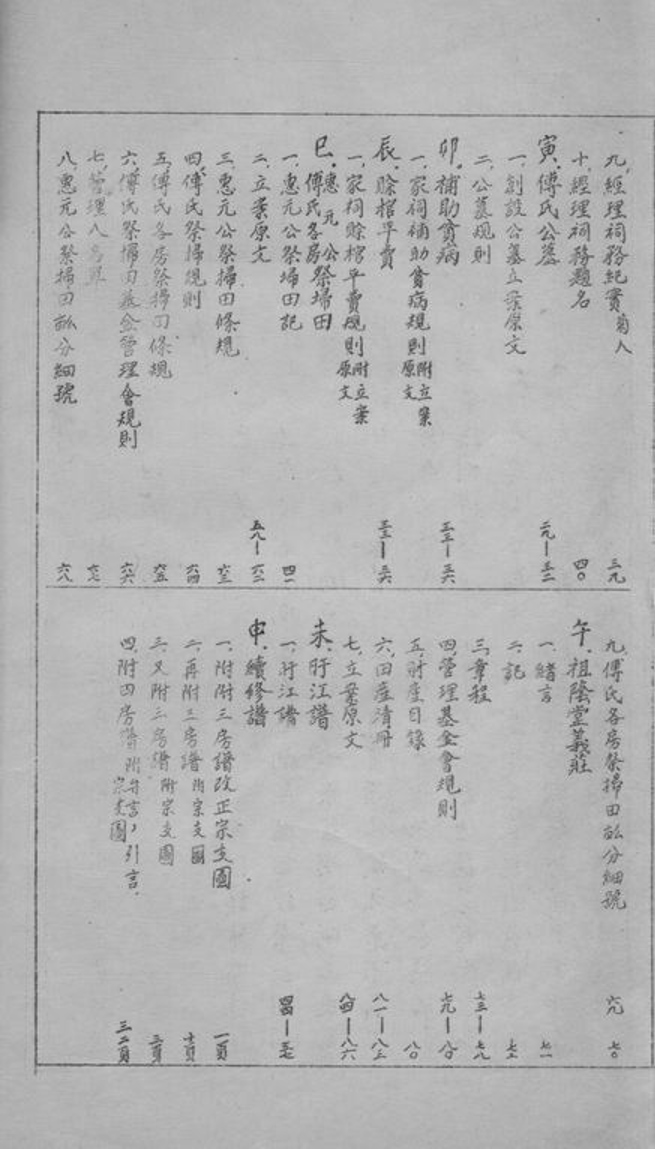 九、經理祠務紀實 三九
十、經理祠務題名 四〇
寅、傅氏公墓 二九—三二
一、創設公墓立案原文
二、公墓規則
卯、補助貧病 三三—三六
一、家祠補助貧病規則附立案原文
辰、賒棺平賣 三三—三六
一、家祠賒棺平賣規則附立案原文
巳、惠元公傅氏各房祭掃田
一、惠元公祭掃田記 四一
二、立案原文 五八—六二
三、惠元公祭掃田條規 六三
四、傅氏祭掃規則 六四
五、傅氏各房祭掃田條規 六五
六、傅氏祭掃田基金管理會規則 六六
七、管理人名單 六七
八、惠元公祭掃田畝分細號 六八
九、傅氏各房祭掃田畝分細號 六九 七〇
午、祖蔭堂義莊
一、緒言 七一
二、記 七二
三、章程 七三—七八
四、管理基金會規則 七九—八〇
五、財產目錄 八〇
六、田產清冊 八一—八三
七、立案原文 八四—八六
未、盱江譜
一、盱江譜
申、續修譜
一、附附三房譜改正宗支圖 一頁
二、再附三房譜附宗支圖
三、又附三房譜附宗支圖 三頁
四、附四房譜附弁言,引言、宗支圖 三二頁